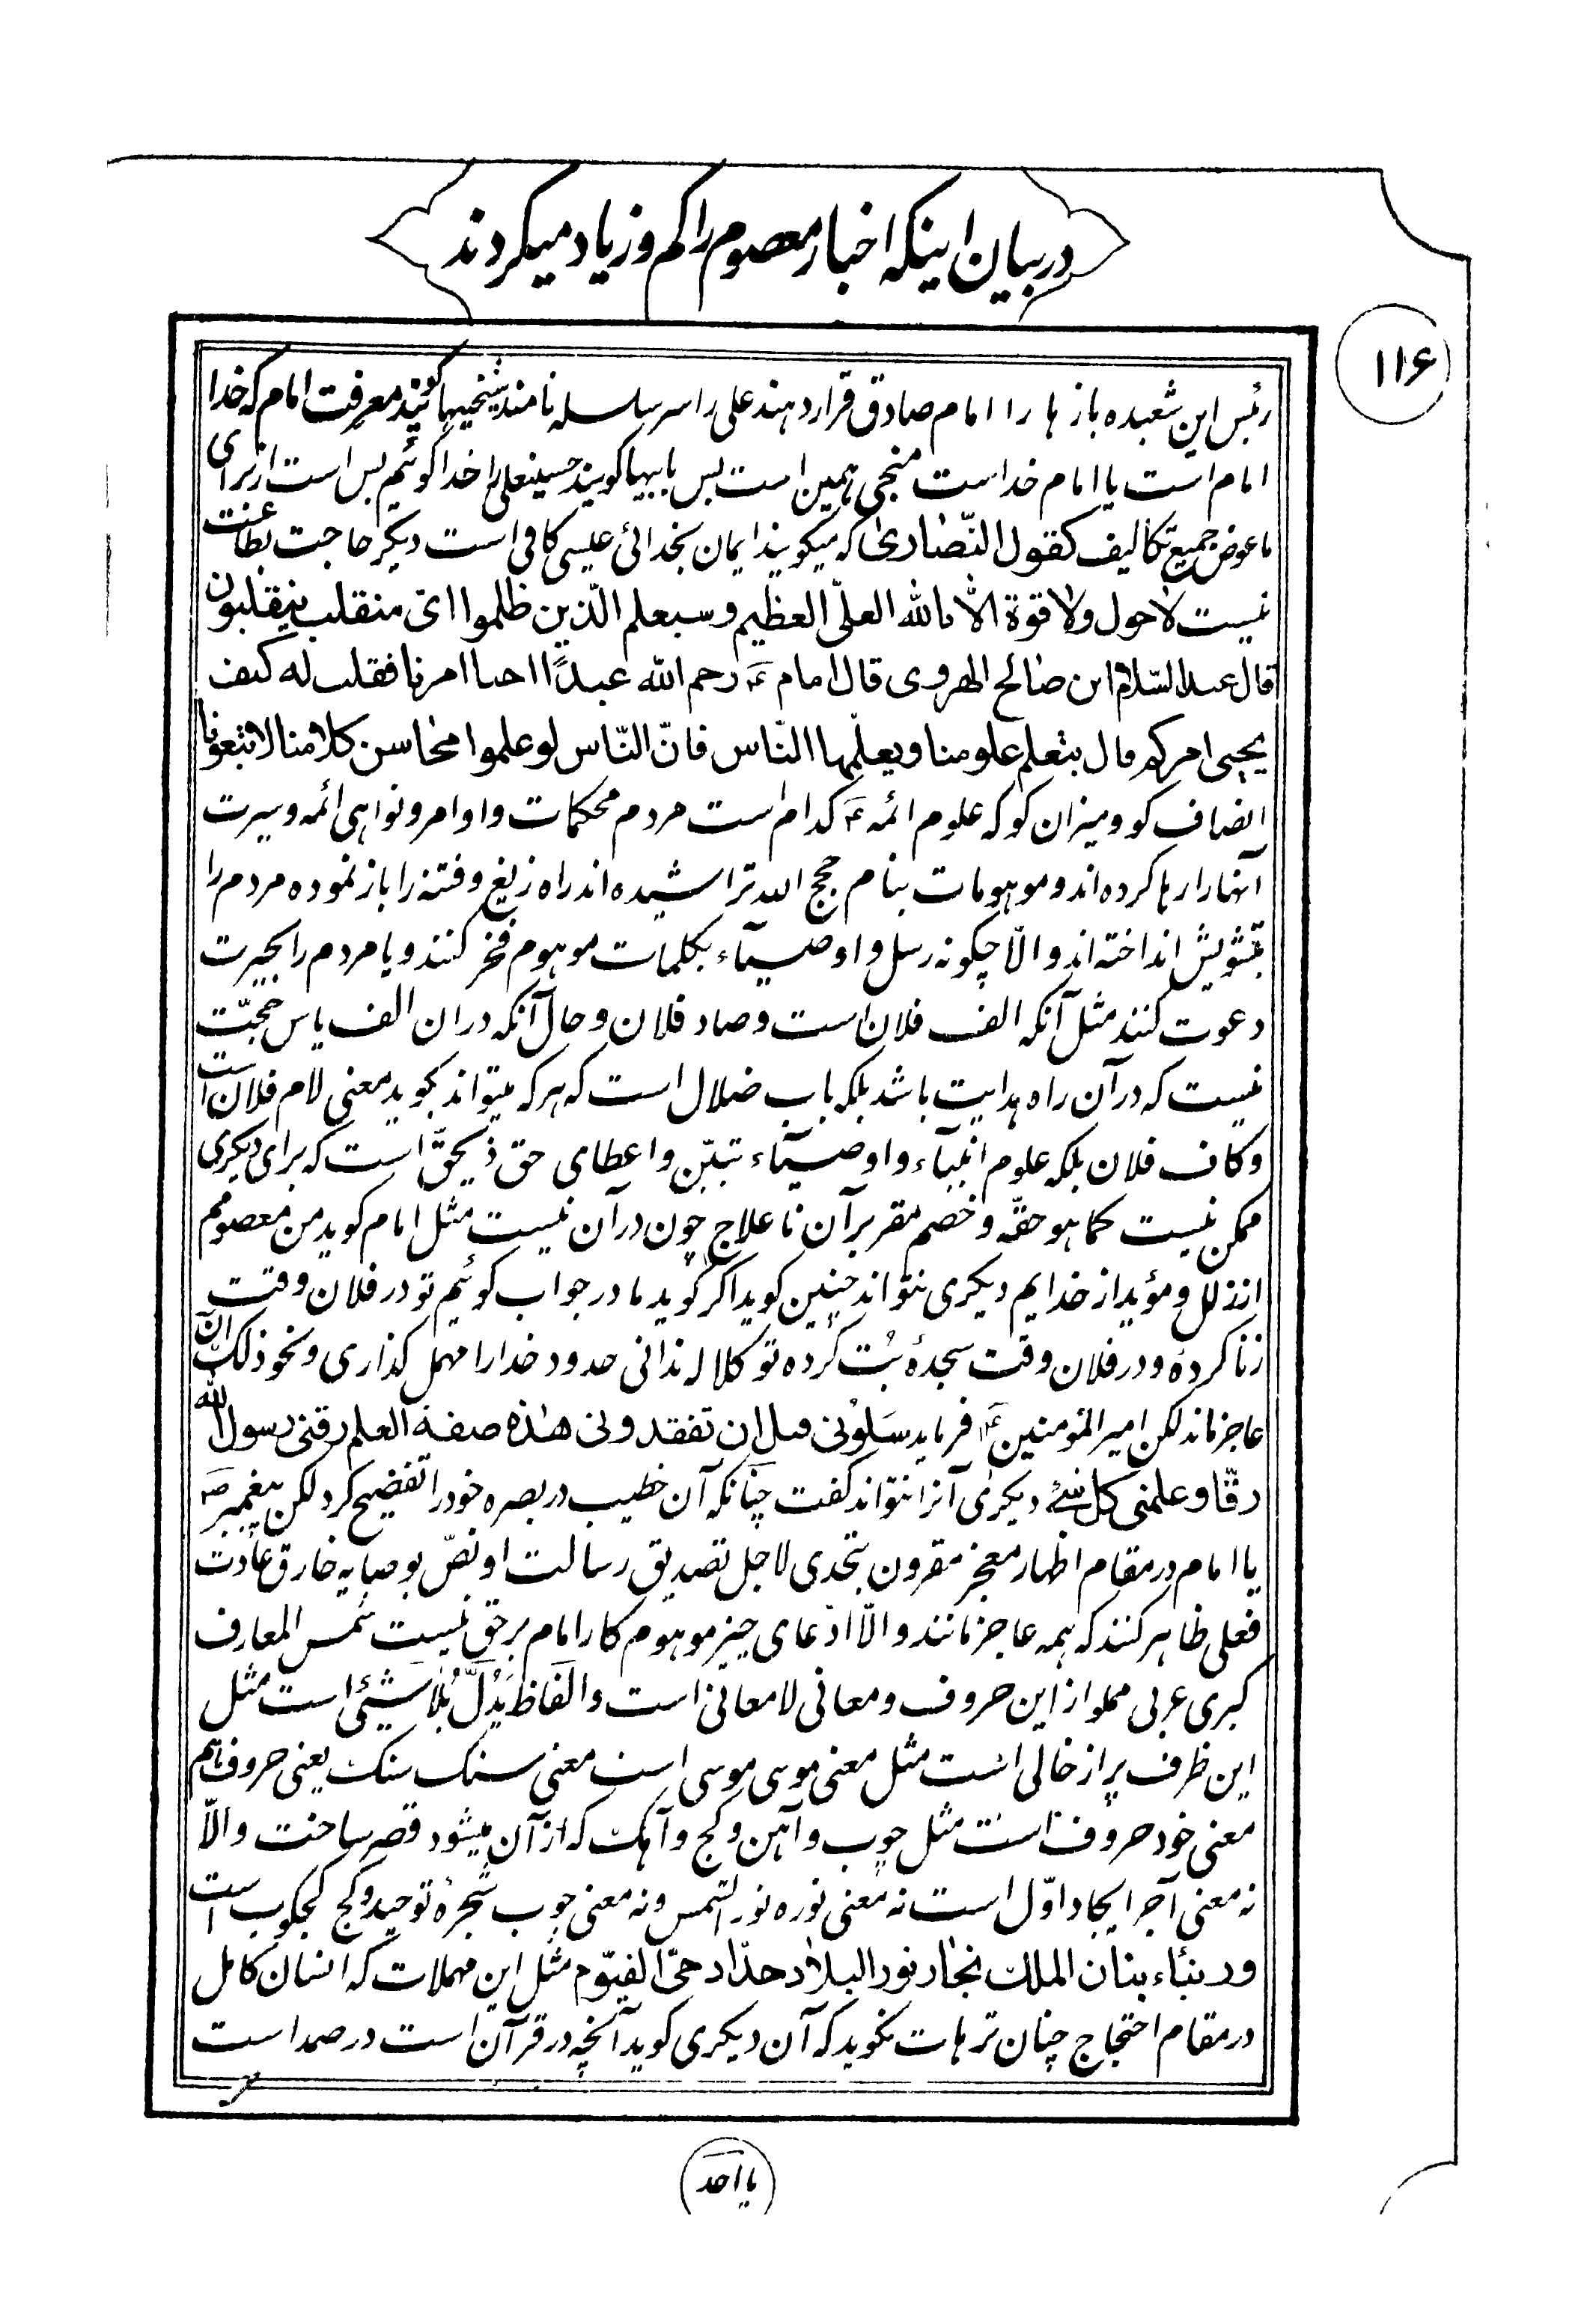 در بیان اینکه اخبار معصوم را کم و زیاد میکردند
۱۱۶
رئیس این شعبده باز ها را امام صادق قرار دهند علی را سر سلسله نامند شیخیها گویند معرفت امام که خدا
امام است یا امام خداست منجی همین است بس بابیها کویند حسینعلی را خدا کوئیم بس است از برای
ما عوض جمیع تکالیف کقول النّصاری که میکویند ایمان بخدائی عیسی کافی است دیکر حاجت بطاعت
نیست لاحول ولا قوة الّا بالله العلیّ العظیم و سیعلم الّذین ظلموا ایّ منقلب ینقلبون
قال عبد السّلام ابن صالح الهروی قال امام ع رحم الله عبدًا احیا امرنا فقلت له کیف
یحیی امرکم قال یتعلم علومنا و یعلّمها النّاس فانّ النّاس لو علموا محاسن کلامنا لاتبعونا
انصاف کو و میزان کو که علوم ائمه ع کدام است مردم محکمات و اوامر و نواهی ائمه و سیرت
آنها را رها کرده اند و موهومات بنام حجج الله تراشیده اند راه زیغ و فتنه را باز نموده مردم را
بتشویش انداخته اند و الّا چکونه رسل و اوصیآء بکلمات موهوم فخر کنند و یا مردم را بحیرت
دعوت کنند مثل آنکه الف فلان است و صاد فلان و حال آنکه در ان الف یاس حجّت
نیست که در آن راه هدایت باشد بلکه باب ضلال است که هر که میتواند بکوید معنی لام فلان است
و کاف فلان بلکه علوم انبیآء و اوصیآء تبیّن و اعطای حق ذیحقّ است که برای دیکری
ممکن نیست کما هو حقّه و خصم مقر بر آن ناعلاج چون در آن نیست مثل امام کوید من معصومم
از زلل و مؤید از خدایم دیکری نتواند چنین کوید اکر کوید ما در جواب کوئیم تو در فلان وقت
زنا کردهٔ و در فلان وقت سجدهٔ بت کرده تو کلاله ندانی حدود خدا را مهمل کذاری و نحو ذلک آن
عاجز ماند لکن امیر المؤمنین ع فرماید سَلُونی قبل ان تفقدونی هذه صفة العلم زقنی رسول الله
زقّا و علمنی کل شئ دیکری آنرا نتواند کفت چنانکه آن خطیب در بصره خود را تفضیح کرد لکن پیغمبر ص
یا امام در مقام اظهار معجز مقرون بتحدی لاجل تصدیق رسالت او نصّ بوصایه خارق عادت
فعلی ظاهر کنند که همه عاجز مانند و الّا ادّعای چیز موهوم کار امام بر حق نیست شمس المعارف
کبری عربی مملو از این حروف و معانی لا معانی است و الفاظ یَدُلُّ بلا شیئی است مثل
این ظرف پر از خالی است مثل معنی موسی موسی است معنی سنک سنک یعنی حروف باهم
معنی خود حروف است مثل چوب و آهن و کج و آهک که از آن میشود قصر ساخت و الّا
نه معنی آجر ایجاد اوّل است نه معنی نوره نور الشمس و نه معنی چوب شجرهٔ توحید و کج است
و ر بنّاء بنان الملک نجّار نور البلاد حدّاد حیّ القیّوم مثل این مهملات که انسان کامل
در مقام احتجاج چنان ترهات نکوید که آن دیکری کوید آنچه در قرآن است در صمد است
یا احد